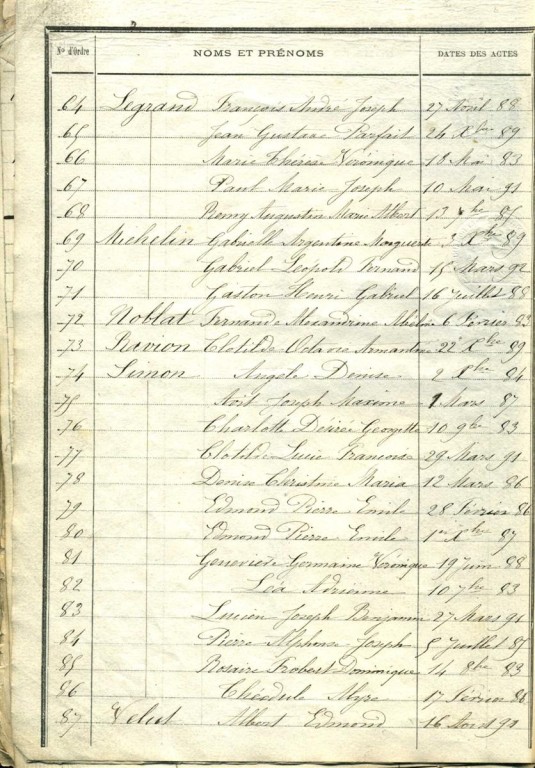 Nº d'Ordre NOMS ET PRÉNOMS DATES DES ACTES
64 Legrand François André Joseph 27 Avril 88
65 Jean Gustave Parfait 24 Xbre 89
66 Marie Thérèse Véronique 18 Mai 83
67 Paul Marie Joseph 10 Mai 91
68 Remy Augustin Marie Albert 13 7bre 85
69 Michelin Gabrielle Argentine Marguerite 3 Xbre 89
70 Gabriel Léopold Fernand 15 Mars 92
71 Gaston Henri Gabriel 16 Juillet 88
72 Noblat Fernande Alexandrine 6 Février 83
73 Clotilde Octavie Armantine 22 Xbre 89
74 Simon Angèle Denise 2 Xbre 84
75 Joseph Maxime 1 Mars 87
76 Charlotte Désirée Georgette 10 9bre 83
77 Clotilde Lucie Françoise 29 Mars 91
78 Denise Christine Maria 12 Mars 86
79 Edmond Pierre Emile 28 Février 86
80 Edmond Pierre Emile 1er Xbre 87
81 Geneviève Germaine Véronique 19 Juin 88
82 Léa Adrienne 10 7bre 83
83 Lucien Joseph Benjamin 27 Mars 91
84 Pierre Alphonse Joseph 5 Juillet 85
85 Rosaire Dominique 14 8bre 83
86 17 Février 86
87 Velut Albert Edmond 16 90